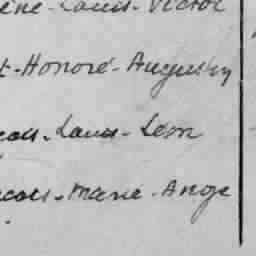 ène-Louis-Victor
t-Honoré-Augustin
çois-Louis-Léon
nçois-Marie-Ange